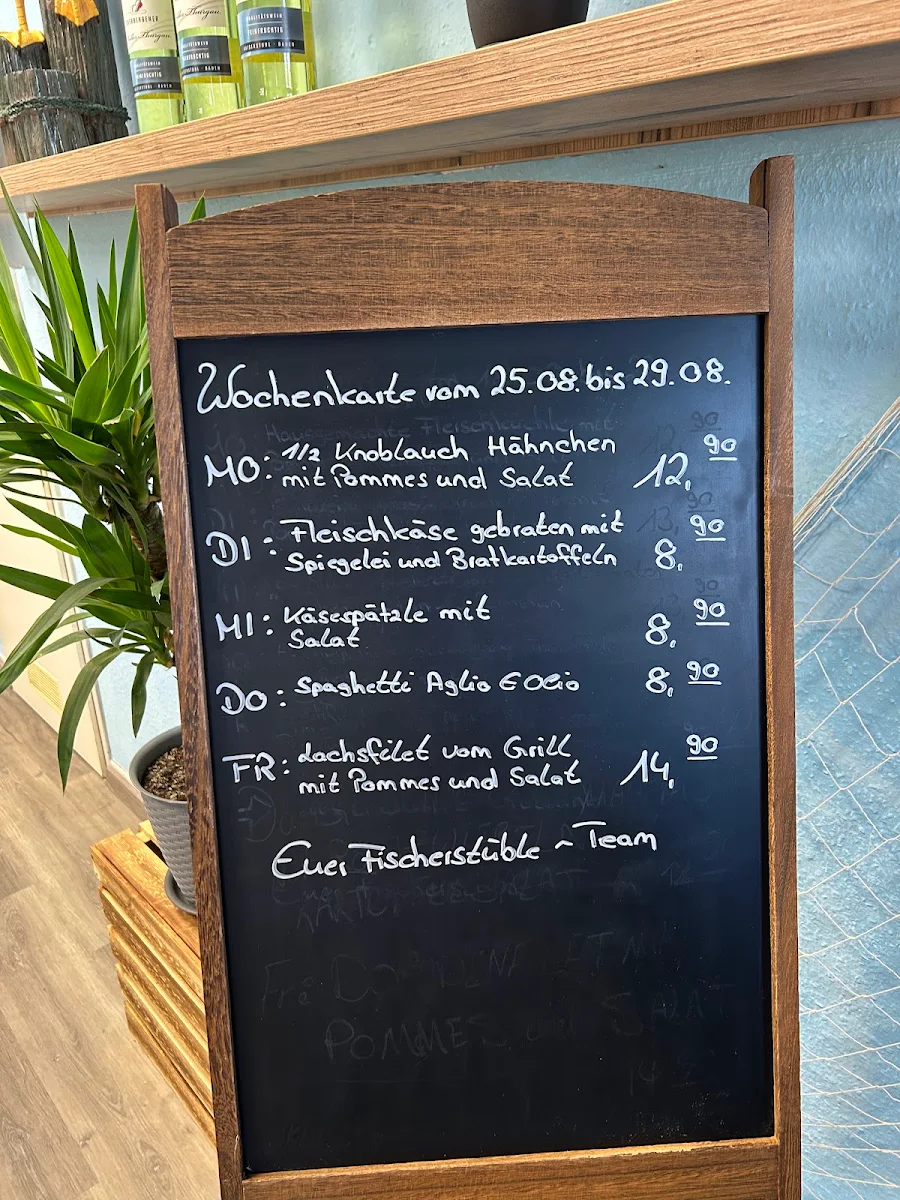 Müller-Thurgau
QUALITÄTSWEIN
Wochenkarte vom 25.08. bis 29.08.
MO: 1/2 Knoblauch Hähnchen
mit Pommes und Salat 12,90
DI: Fleischkäse gebraten mit
Spiegelei und Bratkartoffeln 8,90
MI: Käsespätzle mit
Salat 8,90
DO: Spaghetti Aglio E Olio 8,90
FR: Lachsfilet vom Grill
mit Pommes und Salat 14,90
Euer Fischerstüble ~ Team
POMMES und SALAT